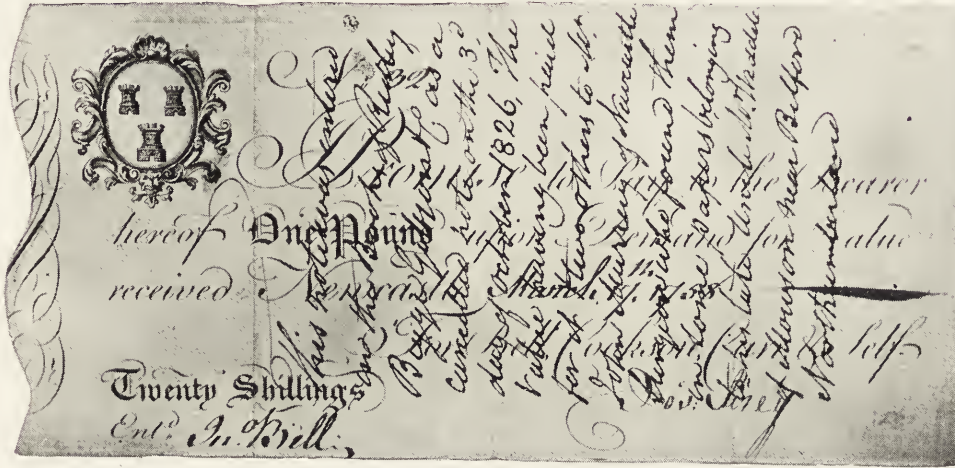 I Promise to Pay to the Bearer
hereof One Pound upon Demand for Value
received Newcastle March 17th 1758
Cookson, Carr & Self.
Twenty Shillings
Entd. Jno. Bell
This note was entered
in the books of
as a
cancelled note on the 3d
day of October 1826, The
Value having been paid
for it & two others to Mr.
John of Newcastle
who found them
in some papers belonging
to his late Uncle Mr. Thos
of near Belford
Northumberland